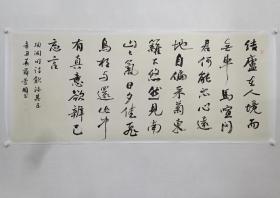 结廬在人境而
無車馬喧问
君何能尔心遠
地自偏采菊东
籬下悠然見南
山山氣日夕佳飛
鳥相与還此中
有真意欲辨已
忘言
陶渊明诗饮酒其五